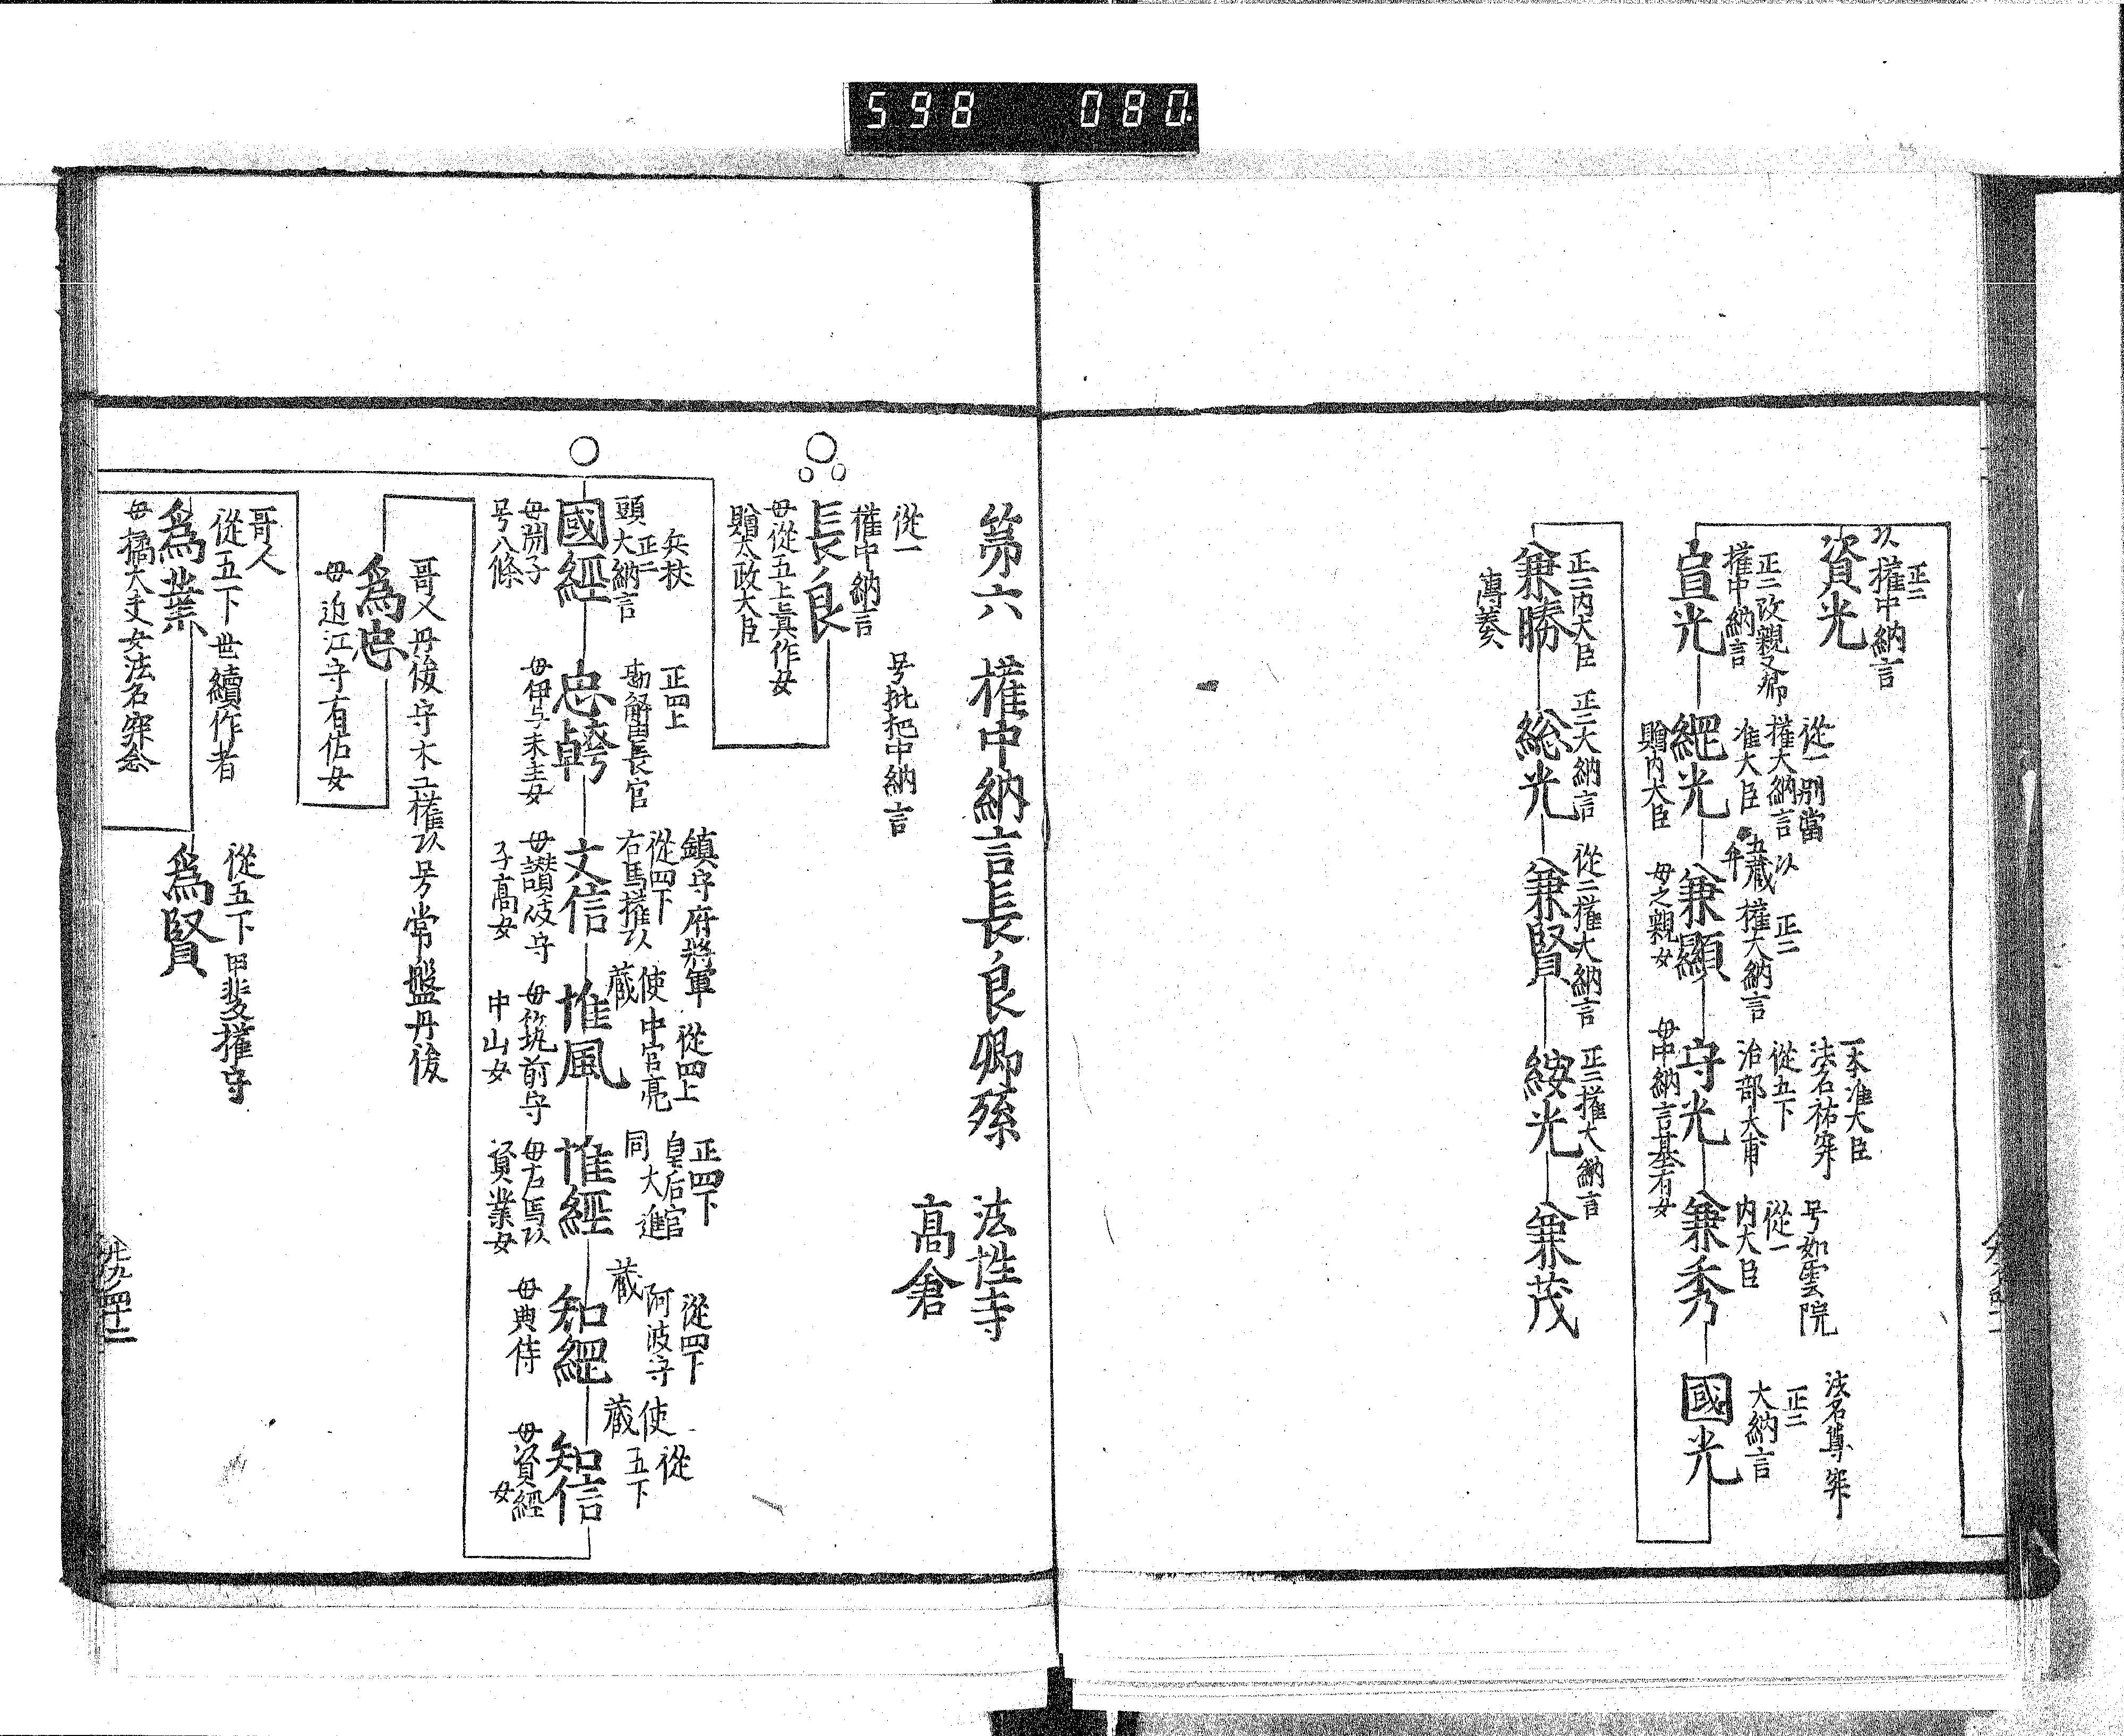 598 080
正二
權中納言
資光
權中納言
宣光
從一別當
權大納言
准大臣
綱光
贈内大臣
正二
權大納言
兼顯
母之親女
一本准大臣
從五下
治部大甫
守光
母中納言基有女
号如雲院
從一
内大臣
兼秀
正二
大納言
國光
正二内大臣
兼勝
傳奏
正二大納言
総光
從二權大納言
兼賢
正二權大納言
綏光
兼茂
第六 權中納言長良卿孫 法性寺
高倉
從一 号批把中納言
權中納言
長良
母從五上眞作女
贈太政大臣
正二
頭大納言
國經
号八條
正四上
勘解由長官
忠幹
鎮守府將軍
從四下
文信
母讃岐守
子高女
從四上
使中宮亮
藏
惟風
母筑前守
中山女
正四下
皇后宮
同大進
惟經
資業女
從四下
阿波守
藏
知綱
母典侍
使從
藏五下
知信
母資經
女
哥人丹後守木工權 号常盤丹後
爲忠
母近江守有佑女
哥人
從五下世續作者
爲業
母橘大夫女法名寂念
從五下甲斐權守
爲賢